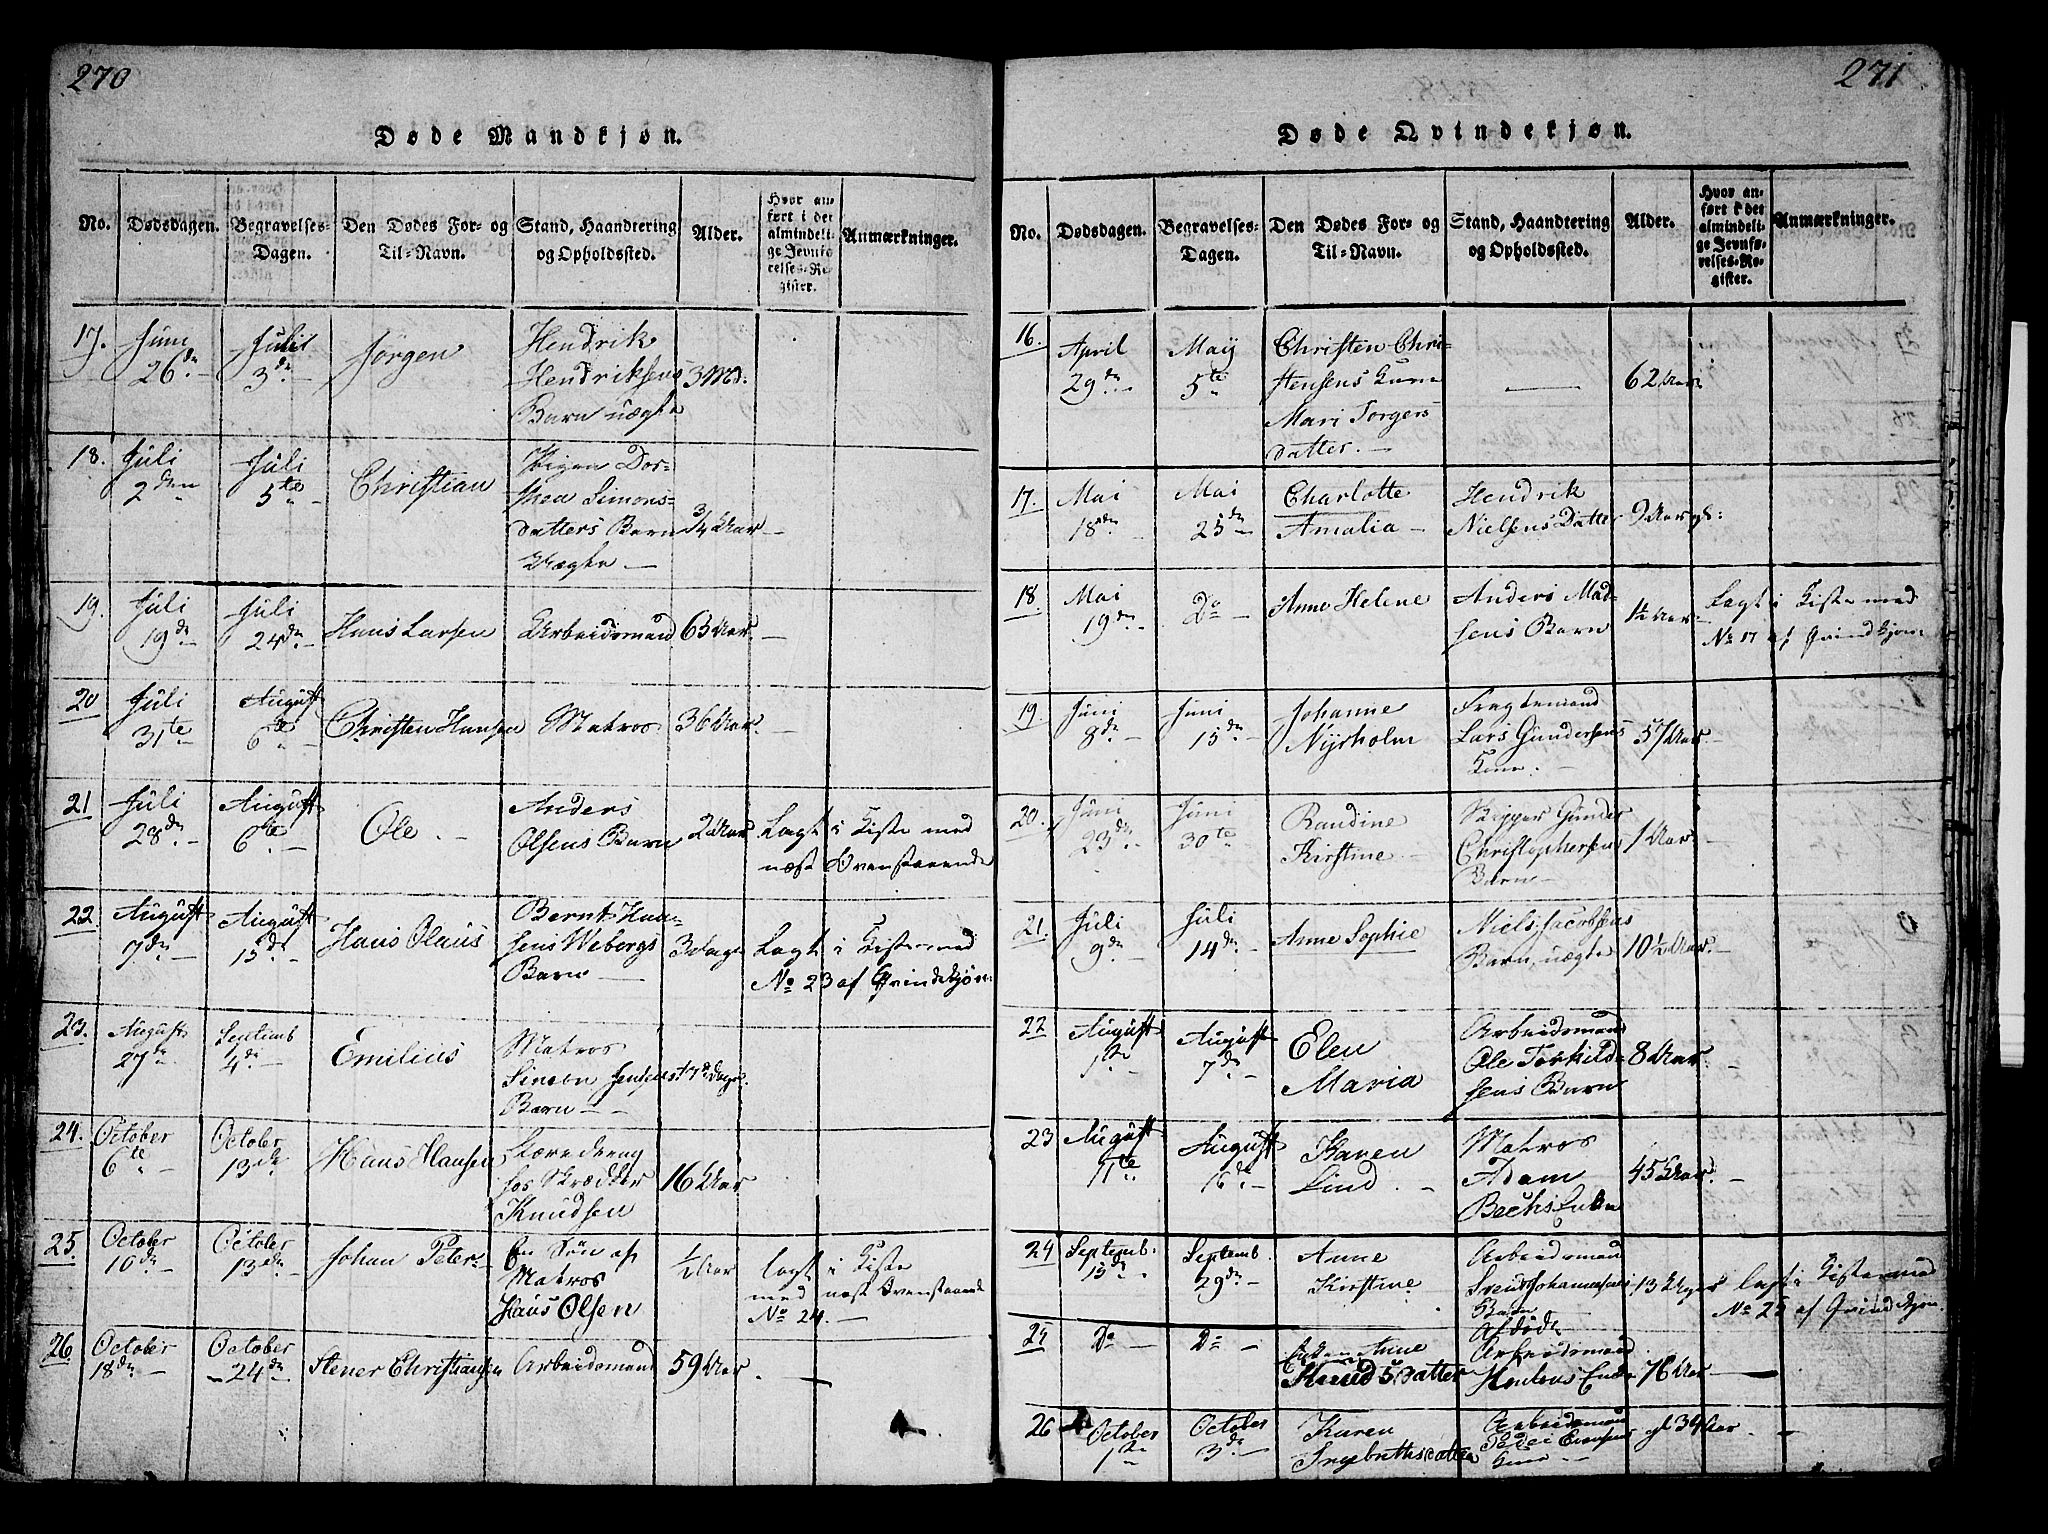 270
Døde Mandkjøn.
No. Dødsdagen. Begravelses-Dagen. Den Dødes For- og Til-Navn. Stand, Haandtering og Opholdssted. Alder. Hvor anført i det almindelige Jevnførelses-Register. Anmærkninger.
17. Juni 26de Julii 3de Jørgen Hendrik Hendriksens Barn uægte 3 Md.
18. Juli 2den Juli 5te Christian Pigen Dorthea Simonsdatters Barn Uægte 3/4 Aar
19. Juli 19de Juli 24de Hans Larsen Arbeidsmand 63 Aar
20 Juli 31te August 6te Christen Hansen Matros 36 Aar
21 Juli 28de August 6te Ole Anders Olsens Barn 2 Aar Lagt i Kiste med næst Ovenstaaende
22. August 7de August 15de Hans Olaus Bernt Hansens Weborgs Barn 3 Dage Lagt i Kiste med No 23 af Qvindekjøn
23. August 27de Septemb 4de Emilius Matros Simon Jensens Barn Dage
24. October 6te October 13de Hans Hansen Læredreng hos Skrædder Knudsen 16 Aar
25. October 10de October 13de Johan Peter En Søn af Matros Hans Olsen 1/2 Aar lagt i Kiste med næst Ovenstaaende No 24.
26 October 18de October 24de Stener Christiansen Arbeidsmand 59 Aar
271
Døde Qvindekjøn.
No. Dødsdagen. Begravelses-Dagen. Den Dødes For- og Til-Navn. Stand, Haandtering og Opholdssted. Alder. Hvor anført i det almindelige Jevnførelses-Register. Anmærkninger.
16. April 29de Maij 5te Christen Christensens Kone Mari Torgersdatter. 62 Aar
17. Mai 18de Mai 25de Charlotte Amalia Hendrik Nielsens Datter 9 Aar gl:
18 Mai 19de Do Anne Helene Anders Madsens Barn 1 1/4 Aar Lagt i Kiste med No 17 af Qvindekjøn
19. Juni 8de Juni 15de Johanne Nyrholm Fragtemand Lars Gundersens Kone. 57 Aar
20. Juni 23de Juni 30te Randine Kirstine Skipper Gunder Christophersens Barn 1 Aar
21. Juli 9de Juli 14de Anne Sophie Niels Jacobsens Barn, uægte 10 1/2 Aar
22 August 1ste August 7de Elen Maria Arbeidsmand Ole Torkildsens Barn 8 Aar
23 August 11te August 16de Karen Lind Matros Adam Bechs Enke 45 Aar
24 Septemb. 15de Septemb. 29de Anne Kirstine Arbeidsmand Svend Johannesens Barn 13 Uger lagt i Kiste med No 25 af Qvindekjøn
25 Do Do Enken Anne Knudsdatter Afdøde Arbeidsmand Enke 76 Aar
26 October 1ste October 3de Karen Ingebrethsdatter Arbeidsmand Peder Evensens Kone gl 34 Aar